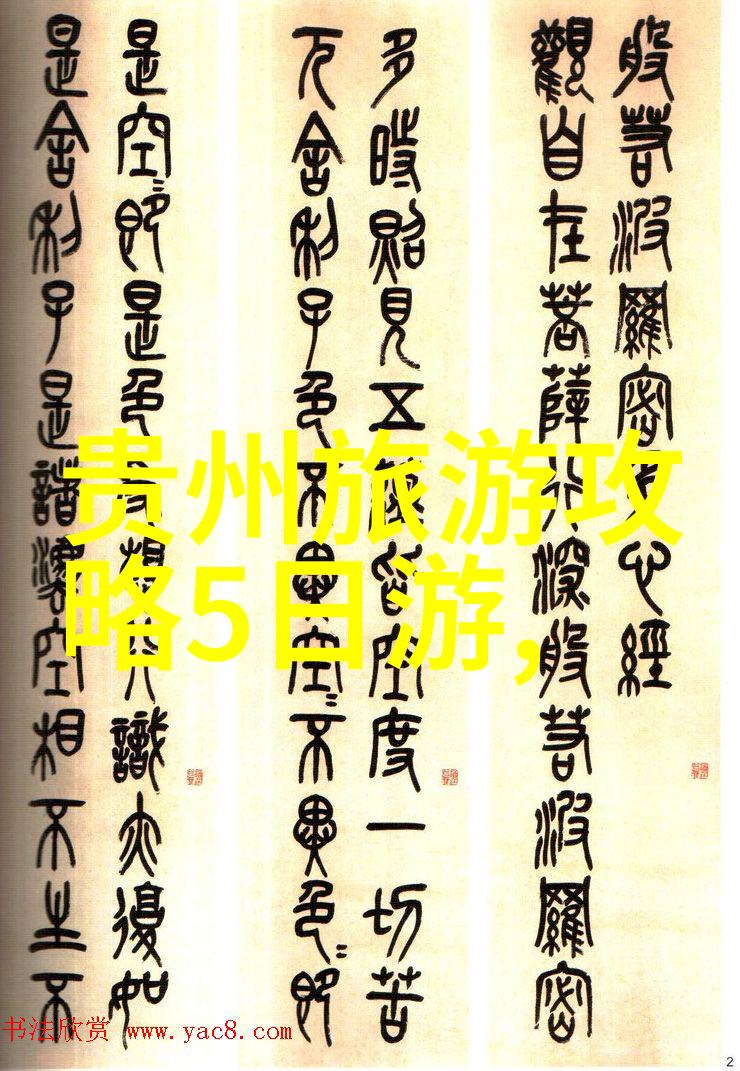 般若波羅密多心經
觀自在菩薩行深般若波羅密
多時照見五蘊皆空度一切苦
厄舍利子色不異空〻不異色〻即
是空〻即是色受想行識亦復如
是舍利子是諸灋空相不生不
贵州旅游攻
略5日游,
书法欣赏 www.yac8.com
2